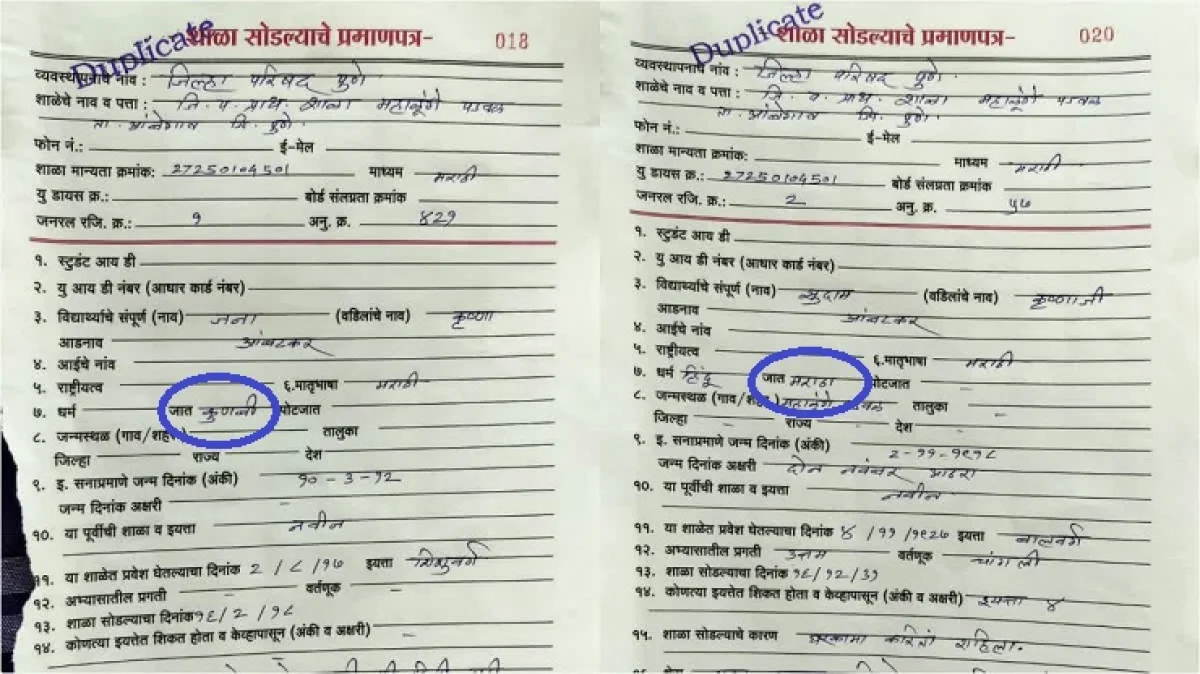 Duplicate
शाळा सोडल्याचे प्रमाणपत्र- 018
व्यवस्थापनाचे नांव : जिल्हा परिषद पुणे.
शाळेचे नाव व पत्ता : जि. प. प्राथ. शाळा महाळूंगे पडवळ
ता. आंबेगाव जि. पुणे.
फोन नं.: ई-मेल
शाळा मान्यता क्रमांक: 27250104501 माध्यम मराठी
यु डायस क्र.: बोर्ड संलग्रता क्रमांक
जनरल रजि. क्र.: १ अनु. क्र. ४२१
१. स्टुडंट आय डी
२. यु आय डी नंबर (आधार कार्ड नंबर)
३. विद्यार्थ्याचे संपूर्ण (नाव) जना (वडिलांचे नाव) कृष्णा
आडनाव आंबटकर
४. आईचे नांव
५. राष्ट्रीयत्व ६.मातृभाषा मराठी
७. धर्म जात कुणबी पोटजात
८. जन्मस्थळ (गाव/शहर) तालुका
जिल्हा राज्य देश
९. इ. सनाप्रमाणे जन्म दिनांक (अंकी) १०-३-१२
जन्म दिनांक अक्षरी -
१०. या पूर्वीची शाळा व इयत्ता नवीन
११. या शाळेत प्रवेश घेतल्याचा दिनांक २/८/१७ इयत्ता
१२. अभ्यासातील प्रगती - वर्तणूक -
१३. शाळा सोडल्याचा दिनांक १६/२/१८
१४. कोणत्या इयत्तेत शिकत होता व केव्हापासून (अंकी व अक्षरी) -
Duplicate
शाळा सोडल्याचे प्रमाणपत्र- 020
व्यवस्थापनाचे नांव : जिल्हा परिषद पुणे.
शाळेचे नाव व पत्ता : जि. प. प्राथ. शाळा महाळूंगे पडवळ
ता. आंबेगाव जि. पुणे.
फोन नं.: ई-मेल
शाळा मान्यता क्रमांक: माध्यम मराठी
यु डायस क्र.: 27250104501 बोर्ड संलग्रता क्रमांक
जनरल रजि. क्र.: 2 अनु. क्र. ५७
१. स्टुडंट आय डी
२. यु आय डी नंबर (आधार कार्ड नंबर)
३. विद्यार्थ्याचे संपूर्ण (नाव) सुदाम (वडिलांचे नाव) कृष्णाजी
आडनाव आंबटकर
४. आईचे नांव
५. राष्ट्रीयत्व ६.मातृभाषा मराठी
७. धर्म हिंदू जात मराठा पोटजात
८. जन्मस्थळ (गाव/शहर) महाळूंगे पडवळ तालुका -
जिल्हा - राज्य - देश -
९. इ. सनाप्रमाणे जन्म दिनांक (अंकी) २-११-१९१८
जन्म दिनांक अक्षरी दोन नवंबर अठरा
१०. या पूर्वीची शाळा व इयत्ता नवीन
११. या शाळेत प्रवेश घेतल्याचा दिनांक ४/११/१९२७ इयत्ता बालवर्ग
१२. अभ्यासातील प्रगती उत्तम वर्तणूक चांगली
१३. शाळा सोडल्याचा दिनांक १६/१२/३१
१४. कोणत्या इयत्तेत शिकत होता व केव्हापासून (अंकी व अक्षरी) इयत्ता ४
१५. शाळा सोडल्याचे कारण घरकामा करिता राहिला.